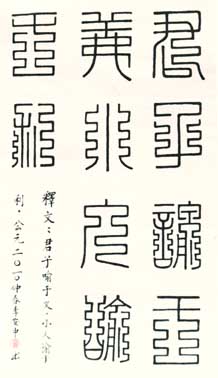 君子喻于
義小人喻
于利
釋文：君子喻于义，小人喻于
利。公元二〇一〇仲春李